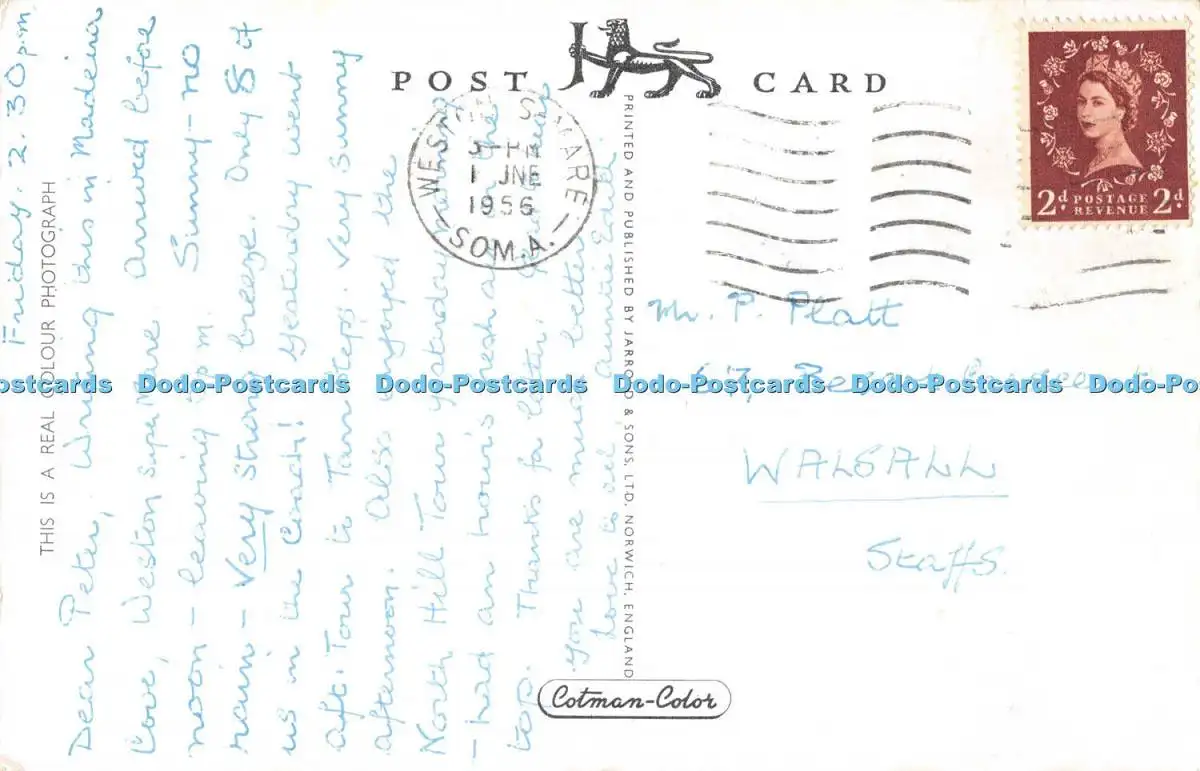 POST CARD
THIS IS A REAL COLOUR PHOTOGRAPH
Friday. 2.30 p.m.
Dear Peter, Writing this in Madeira
Cove, Weston super Mare. Arrived before
noon - leaving 5 p.m. Sunny - no
rain - Very strong breeze. Only 8 of
us in the Coach! Yesterday went
aft. Tour to Tarr Steps. Very Sunny
afternoon. Also enjoyed the
North Hill Tour yesterday
- had an hour's rest at the
top. Thanks for letter.
you are much better.
Love to all Auntie Edith
WESTON S MARE
1 JNE
1956
SOM.A.
PRINTED AND PUBLISHED BY JARROLD & SONS, LTD. NORWICH, ENGLAND
2d POSTAGE REVENUE 2d
Mr. P. Platt
67,
WALSALL
Staffs.
Dodo-Postcards Dodo-Postcards Dodo-Postcards Dodo-Postcards Dodo-Postcards
Cotman-Color